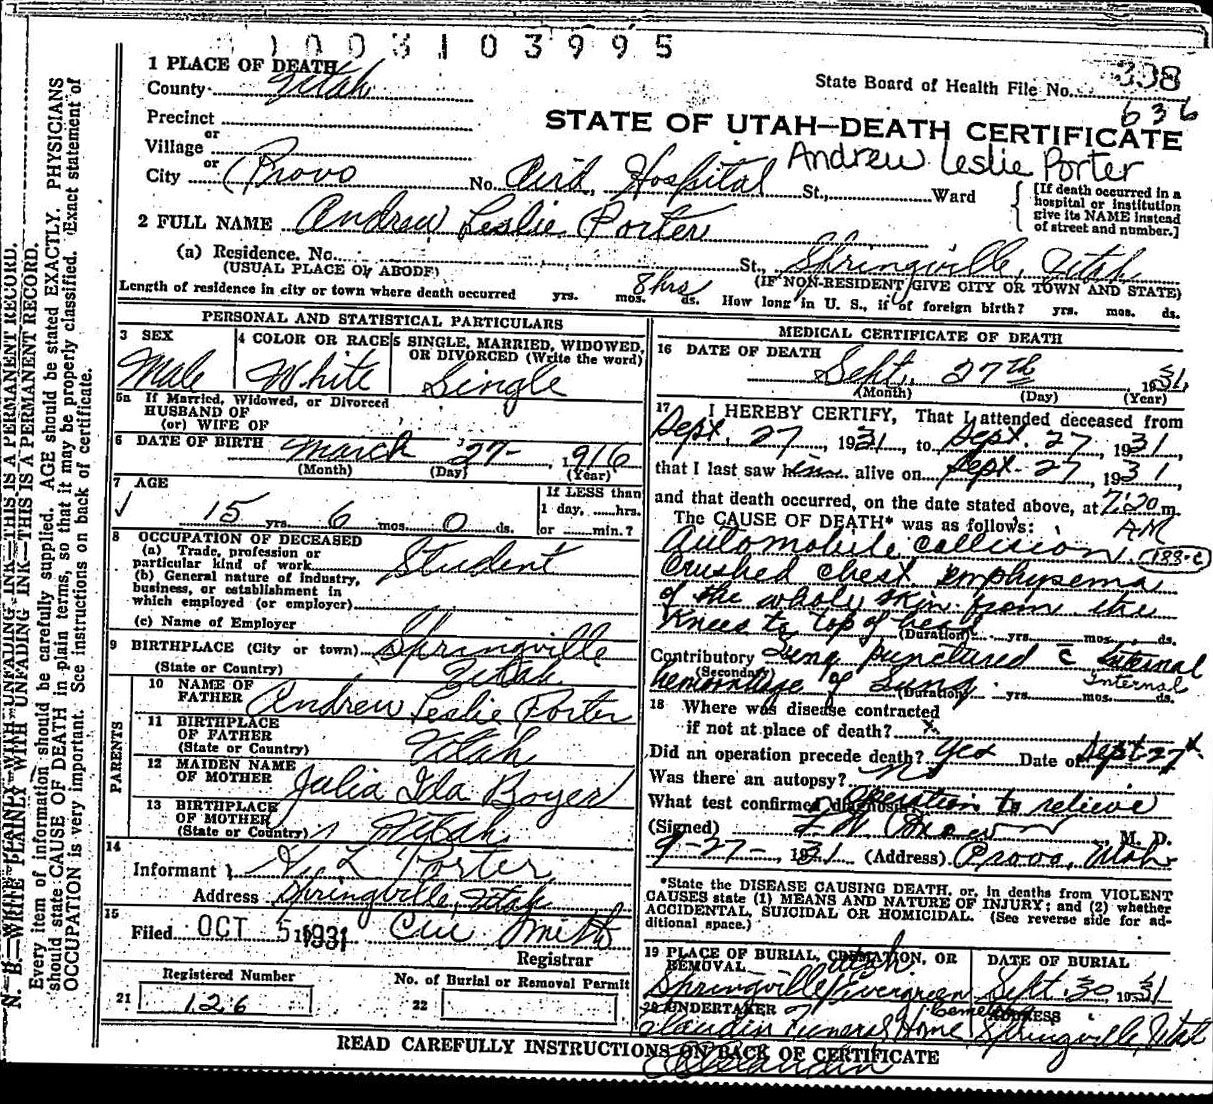 1003103995
338
State Board of Health File No.
636
1 PLACE OF DEATH
County Utah
STATE OF UTAH—DEATH CERTIFICATE
Precinct
or
Village
Andrew Leslie Porter
or
City Provo No. Aird. Hospital St., Ward
[If death occurred in a hospital or institution give its NAME instead of street and number.]
2 FULL NAME Andrew Leslie Porter
(a) Residence. No. St., Springville, Utah
(USUAL PLACE OF ABODE) (IF NON-RESIDENT GIVE CITY OR TOWN AND STATE)
Length of residence in city or town where death occurred yrs. mos. 8hrs ds. How long in U. S., if of foreign birth? yrs. mos. ds.
PERSONAL AND STATISTICAL PARTICULARS
3 SEX
Male
4 COLOR OR RACE
White
5 SINGLE, MARRIED, WIDOWED, OR DIVORCED (Write the word)
Single
5a If Married, Widowed, or Divorced
HUSBAND OF
(or) WIFE OF
6 DATE OF BIRTH March 27- , 1916
(Month) (Day) (Year)
7 AGE
15 yrs. 6 mos. 0 ds.
If LESS than
1 day, ......hrs.
or ........min.?
8 OCCUPATION OF DECEASED
(a) Trade, profession or
particular kind of work Student
(b) General nature of industry,
business, or establishment in
which employed (or employer)
(c) Name of Employer
9 BIRTHPLACE (City or town) Springville
(State or Country) Utah
PARENTS
10 NAME OF
FATHER Andrew Leslie Porter
11 BIRTHPLACE
OF FATHER
(State or Country) Utah
12 MAIDEN NAME
OF MOTHER Julia Ida Boyer
13 BIRTHPLACE
OF MOTHER
(State or Country) Utah
14
Informant L Porter
Address Springville, Utah
15
Filed OCT 5 1931 Smith
Registrar
Registered Number
21 126
No. of Burial or Removal Permit
22
MEDICAL CERTIFICATE OF DEATH
16 DATE OF DEATH
Sept. 27th , 1931
(Month) (Day) (Year)
17 I HEREBY CERTIFY, That I attended deceased from
Sept. 27 , 1931, to Sept. 27 1931
that I last saw him alive on Sept. 27 , 1931,
and that death occurred, on the date stated above, at 7:20 m.
The CAUSE OF DEATH* was as follows: AM
Automobile collision 188-c
Crushed chest emphysema
of the whole skin from the
Knees to top of head
(Duration) yrs. mos. ds.
Contributory Lung punctured c Internal
(Secondary) Internal
hemorrhage of Lung (Duration) yrs. mos. ds.
18 Where was disease contracted
if not at place of death? x
Did an operation precede death? Yes Date of Sept-27
Was there an autopsy? No
What test confirmed diagnosis? Operation to relieve
(Signed) M. D.
9-27-, 1931 (Address) Provo, Utah
*State the DISEASE CAUSING DEATH, or, in deaths from VIOLENT
CAUSES state (1) MEANS AND NATURE OF INJURY; and (2) whether
ACCIDENTAL, SUICIDAL OR HOMICIDAL. (See reverse side for ad-
ditional space.)
19 PLACE OF BURIAL, CREMATION, OR
REMOVAL Utah
Springville Evergreen Cemetery
DATE OF BURIAL
Sept. 30, 1931
20 UNDERTAKER
Claudin Funeral Home
ADDRESS
Springville, Utah
READ CAREFULLY INSTRUCTIONS ON BACK OF CERTIFICATE
Claudin
N. B.—WRITE PLAINLY WITH UNFADING INK—THIS IS A PERMANENT RECORD.
N. B.—WRITE PLAINLY WITH UNFADING INK—THIS IS A PERMANENT RECORD.
Every item of information should be carefully supplied. AGE should be stated EXACTLY. PHYSICIANS
should state CAUSE OF DEATH in plain terms, so that it may be properly classified. Exact statement of
OCCUPATION is very important. See instructions on back of certificate.